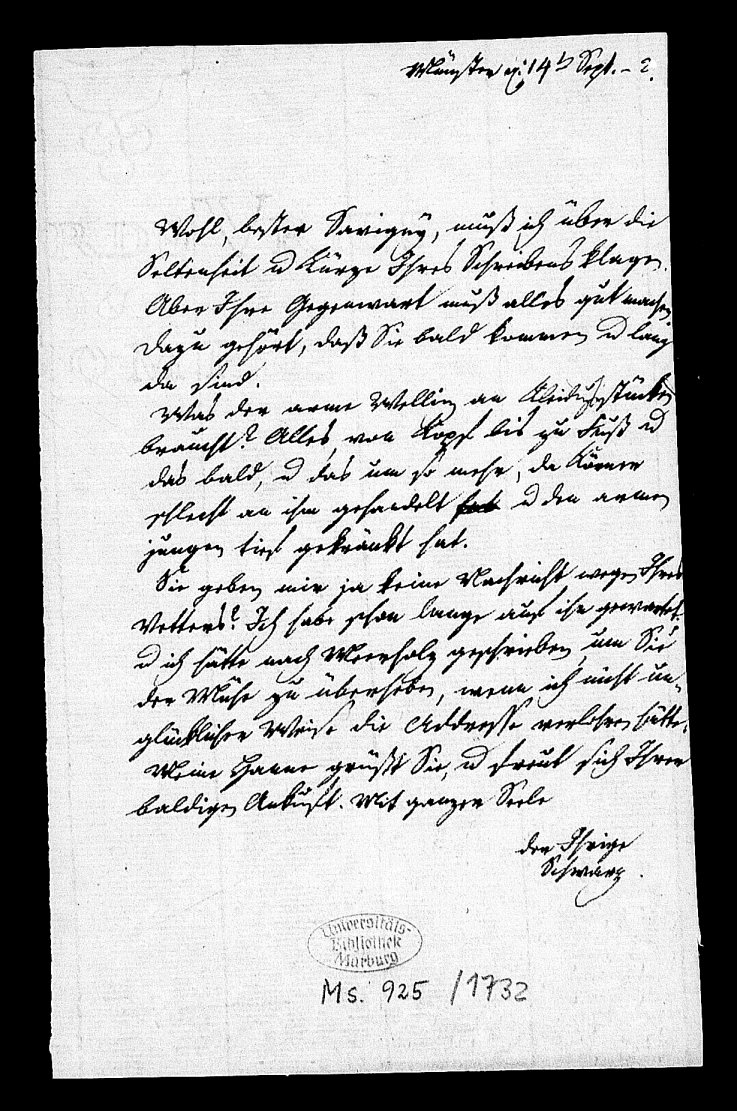 Münster d. 14t Sept. – 2.
Wohl, bester Savigny, muß ich über die
Seltenheit u Kürze Ihres Schreibens klagen.
Aber Ihre Gegenwart muß alles gut machen,
dazu gehört, daß Sie bald kommen u lang
da sind.
Was der arme Welling an Kleidungsstücken
braucht? Alles von Kopf bis zu Fuß u
das bald, u das um so mehr, da
schlecht an ihm gehandelt hat u den armen
jungen tief gekränkt hat.
Sie geben mir ja keine Nachricht wegen Ihres
Vetters? Ich habe schon lange auf ihn gewartet
u ich hätte nach Meerholz geschrieben um Sie
der Mühe zu überheben, wenn ich nicht un-
glücklicher Weise die Addresse verlohren hätte.
Meine Hanne grüßt Sie, u freut sich Ihrer
baldigen Ankunft. Mit ganzer Seele
der Ihrige
Schwarz.
Universitäts-
Bibliothek
Marburg
Ms. 925 /1732